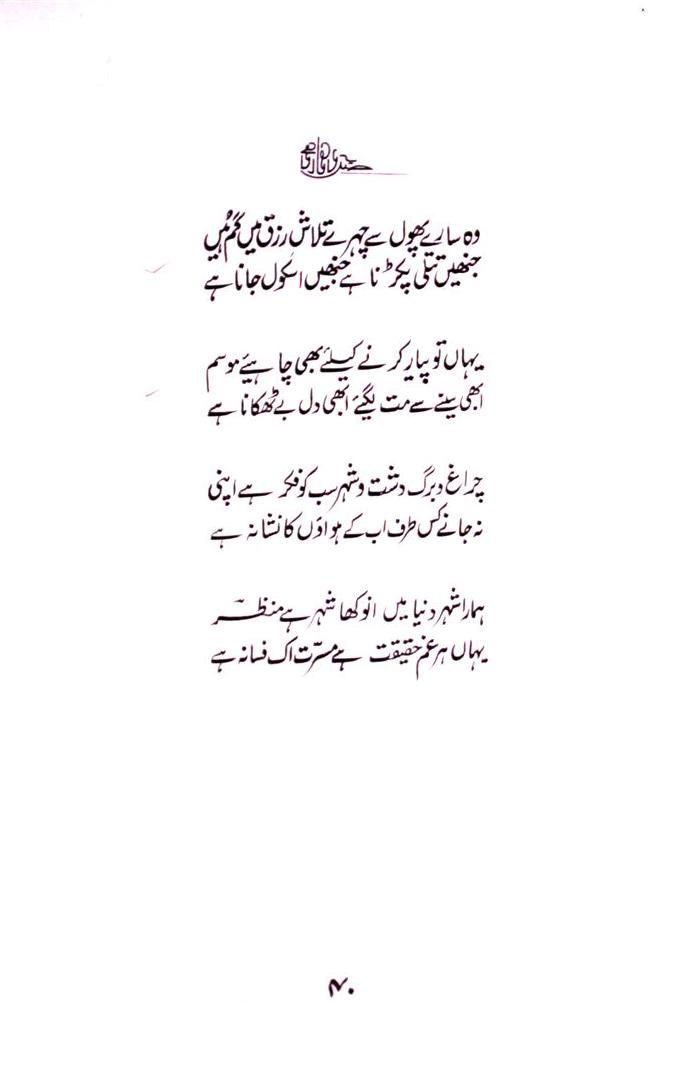 وہ سارے پھول سے چہرے تلاشِ رزق میں گم ہیں
جنھیں تتلی پکڑنا ہے جنھیں اسکول جانا ہے
یہاں تو پیار کرنے کیلئے بھی چاہیئے موسم
ابھی سینے سے مت لگیئے ابھی دل بے ٹھکانا ہے
چراغ و برگ و دشت و شہر سب کو فکر ہے اپنی
نہ جانے کس طرف اب کے ہواؤں کا نشانہ ہے
ہمارا شہر دنیا میں انوکھا شہر ہے منظر
یہاں ہر غم حقیقت ہے مسرّت اک فسانہ ہے
۴۰